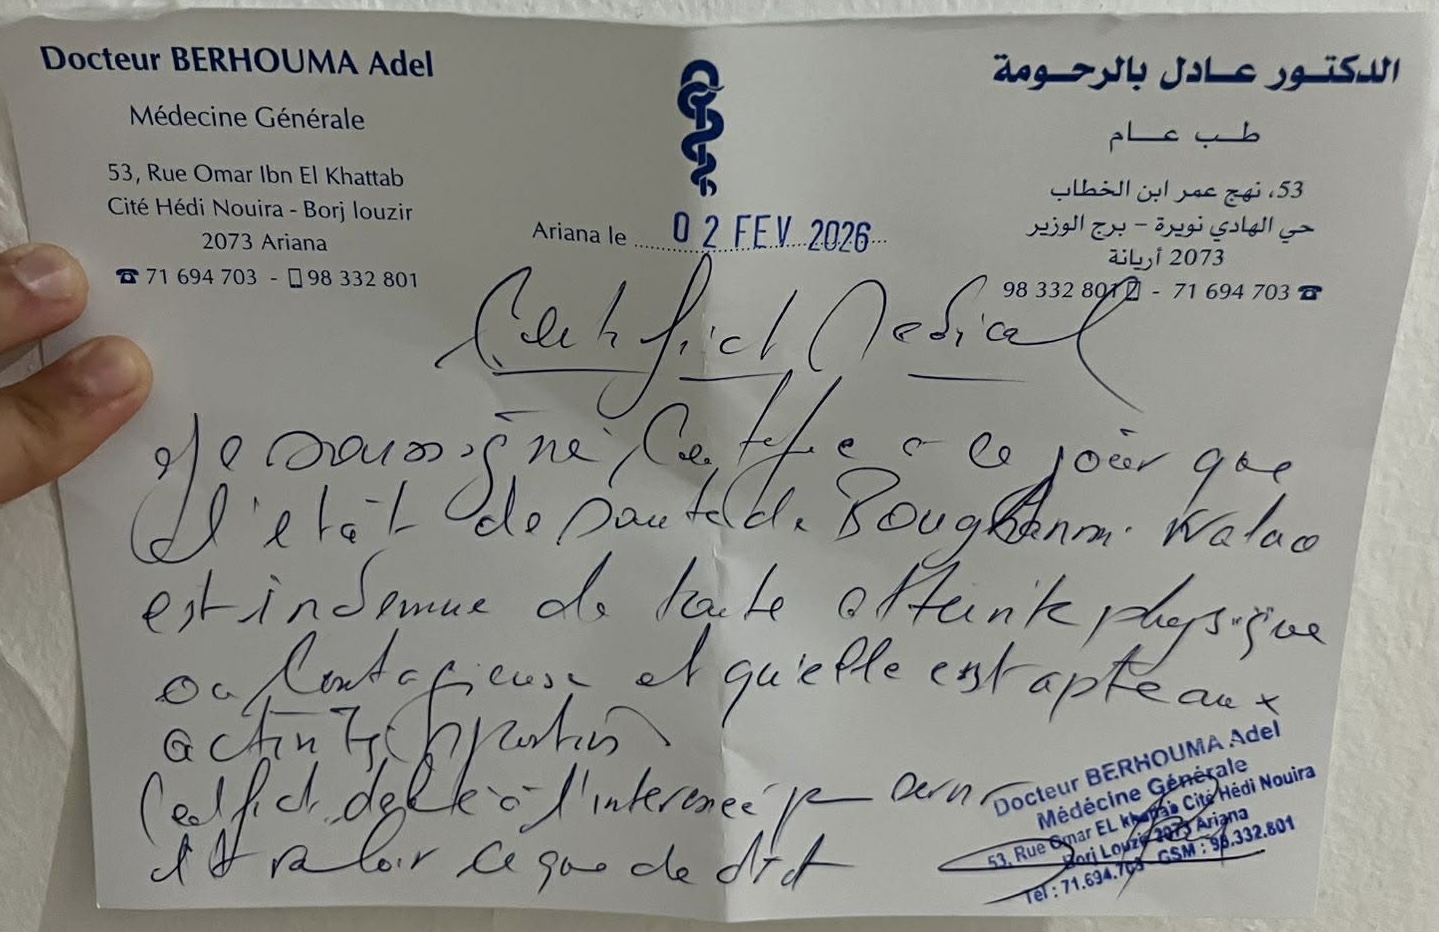 Docteur BERHOUMA Adel
Médecine Générale
53, Rue Omar Ibn El Khattab
Cité Hédi Nouira - Borj louzir
2073 Ariana
☎ 71 694 703 - 98 332 801
الدكتور عادل بالرحومة
طب عام
53، نهج عمر ابن الخطاب
حي الهادي نويرة – برج الوزير
2073 أريانة
98 332 801 - 71 694 703 ☎
Ariana le 02 FEV. 2026
Certificat Medical
Je soussigné, Certifie a ce jour que
l'état de santé de Boughanmi
est indemne de toute atteinte physique
ou Contagieuse et qu'elle est apte aux
activités sportives
Certificat délivré à l'interessée pour servir
et valoir ce que de droit
Docteur BERHOUMA Adel
Médécine Générale
53, Rue Omar EL khattab Cité Hédi Nouira
Borj Louzir 2073 Ariana
Tél : 71.694.703 GSM : 98.332.801